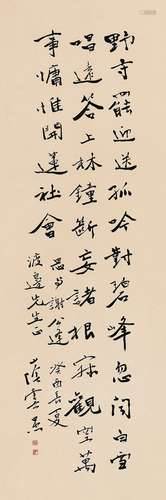 野寺罷迎送孤吟對碧峰忽聞白雪
唱遠答上林鐘斷妄諸根寂觀空萬
事慵惟開蓮社會
思與謝公逢
癸酉長夏
渡邊先生正